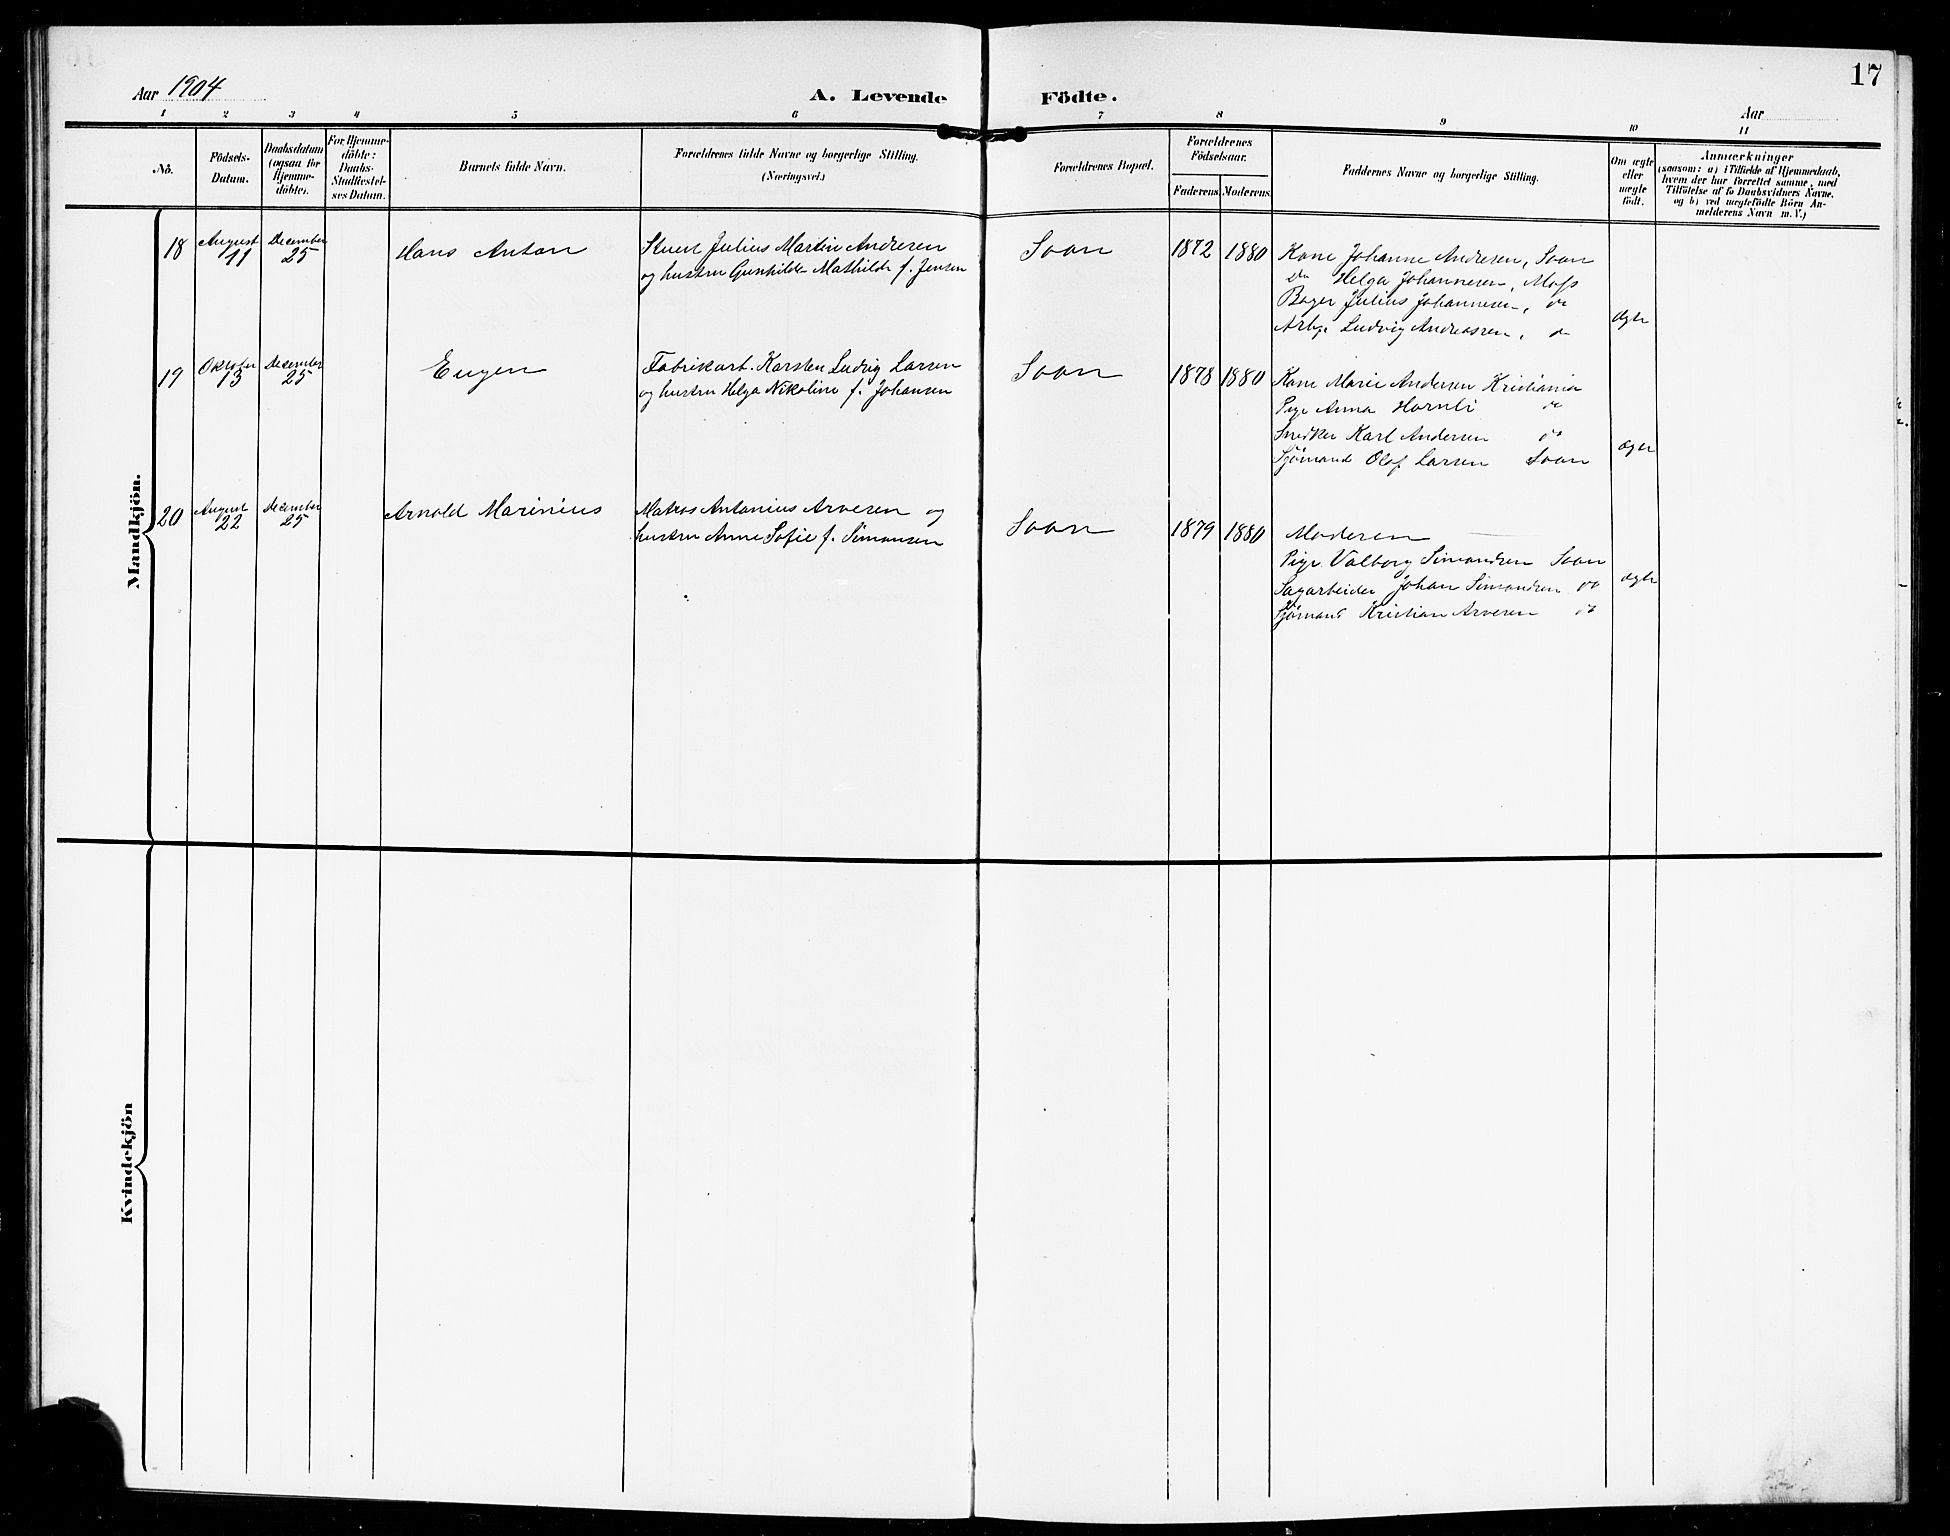 17
Aar 1904
A. Levende Födte.
Aar
1 2 3 4 5 6 7 8 9 10 11
No.
Födsels-
Datum.
Daabsdatum
(ogsaa for
Hjemme-
döbte).
For Hjemme-
döbte:
Daabs-
Stadfæstel-
ses Datum.
Barnets fulde Navn.
Forældrenes fulde Navne og borgerlige Stilling.
(Næringsvei.)
Forældrenes Bopæl.
Forældrenes
Födselsaar.
Faderens. Moderens.
Faddernes Navne og borgerlige Stilling.
Om ægte
eller
uægte
födt.
Anmærkninger
(saasom: a) i Tilfælde af Hjemmedaab,
hvem der har forrettet samme, med
Tilföielse af to Daabsvidners Navne,
og b) ved uægtefödte Börn An-
melderens Navn m. V.)
Mandkjön.
18
August
11
December
25
Hans Anton
Stuert Julius Martin Andresen
og hustru Gunhilde Mathilde f. Jensen
Soon
1872 1880
Kone Johanne Andresen, Soon
Do Helga Johannesen, Moss
Bager Julius Johannesen, do
Arb. Ludvig Andreassen, do
ægte
19
Oktober
13
December
25
Eugen
Fabrikarb. Karsten Ludvig Larsen
og hustru Helga Nikoline f. Johansen
Soon
1878 1880
Kone Marie Andersen Kristiania
Pige Anna Hornli do
Snedker Karl Andersen do
Sjömand Olaf Larsen Soon
ægte
20
August
22
December
25
Arnold Marinius
Matros Antonius Arvesen og
hustru Anne Sofie f. Simonsen
Soon
1879 1880
Moderen
Pige Valborg Simonsen Soon
Sagarbeider Johan Simonsen do
Sjömand Kristian Arvesen do
ægte
Kvindekjön